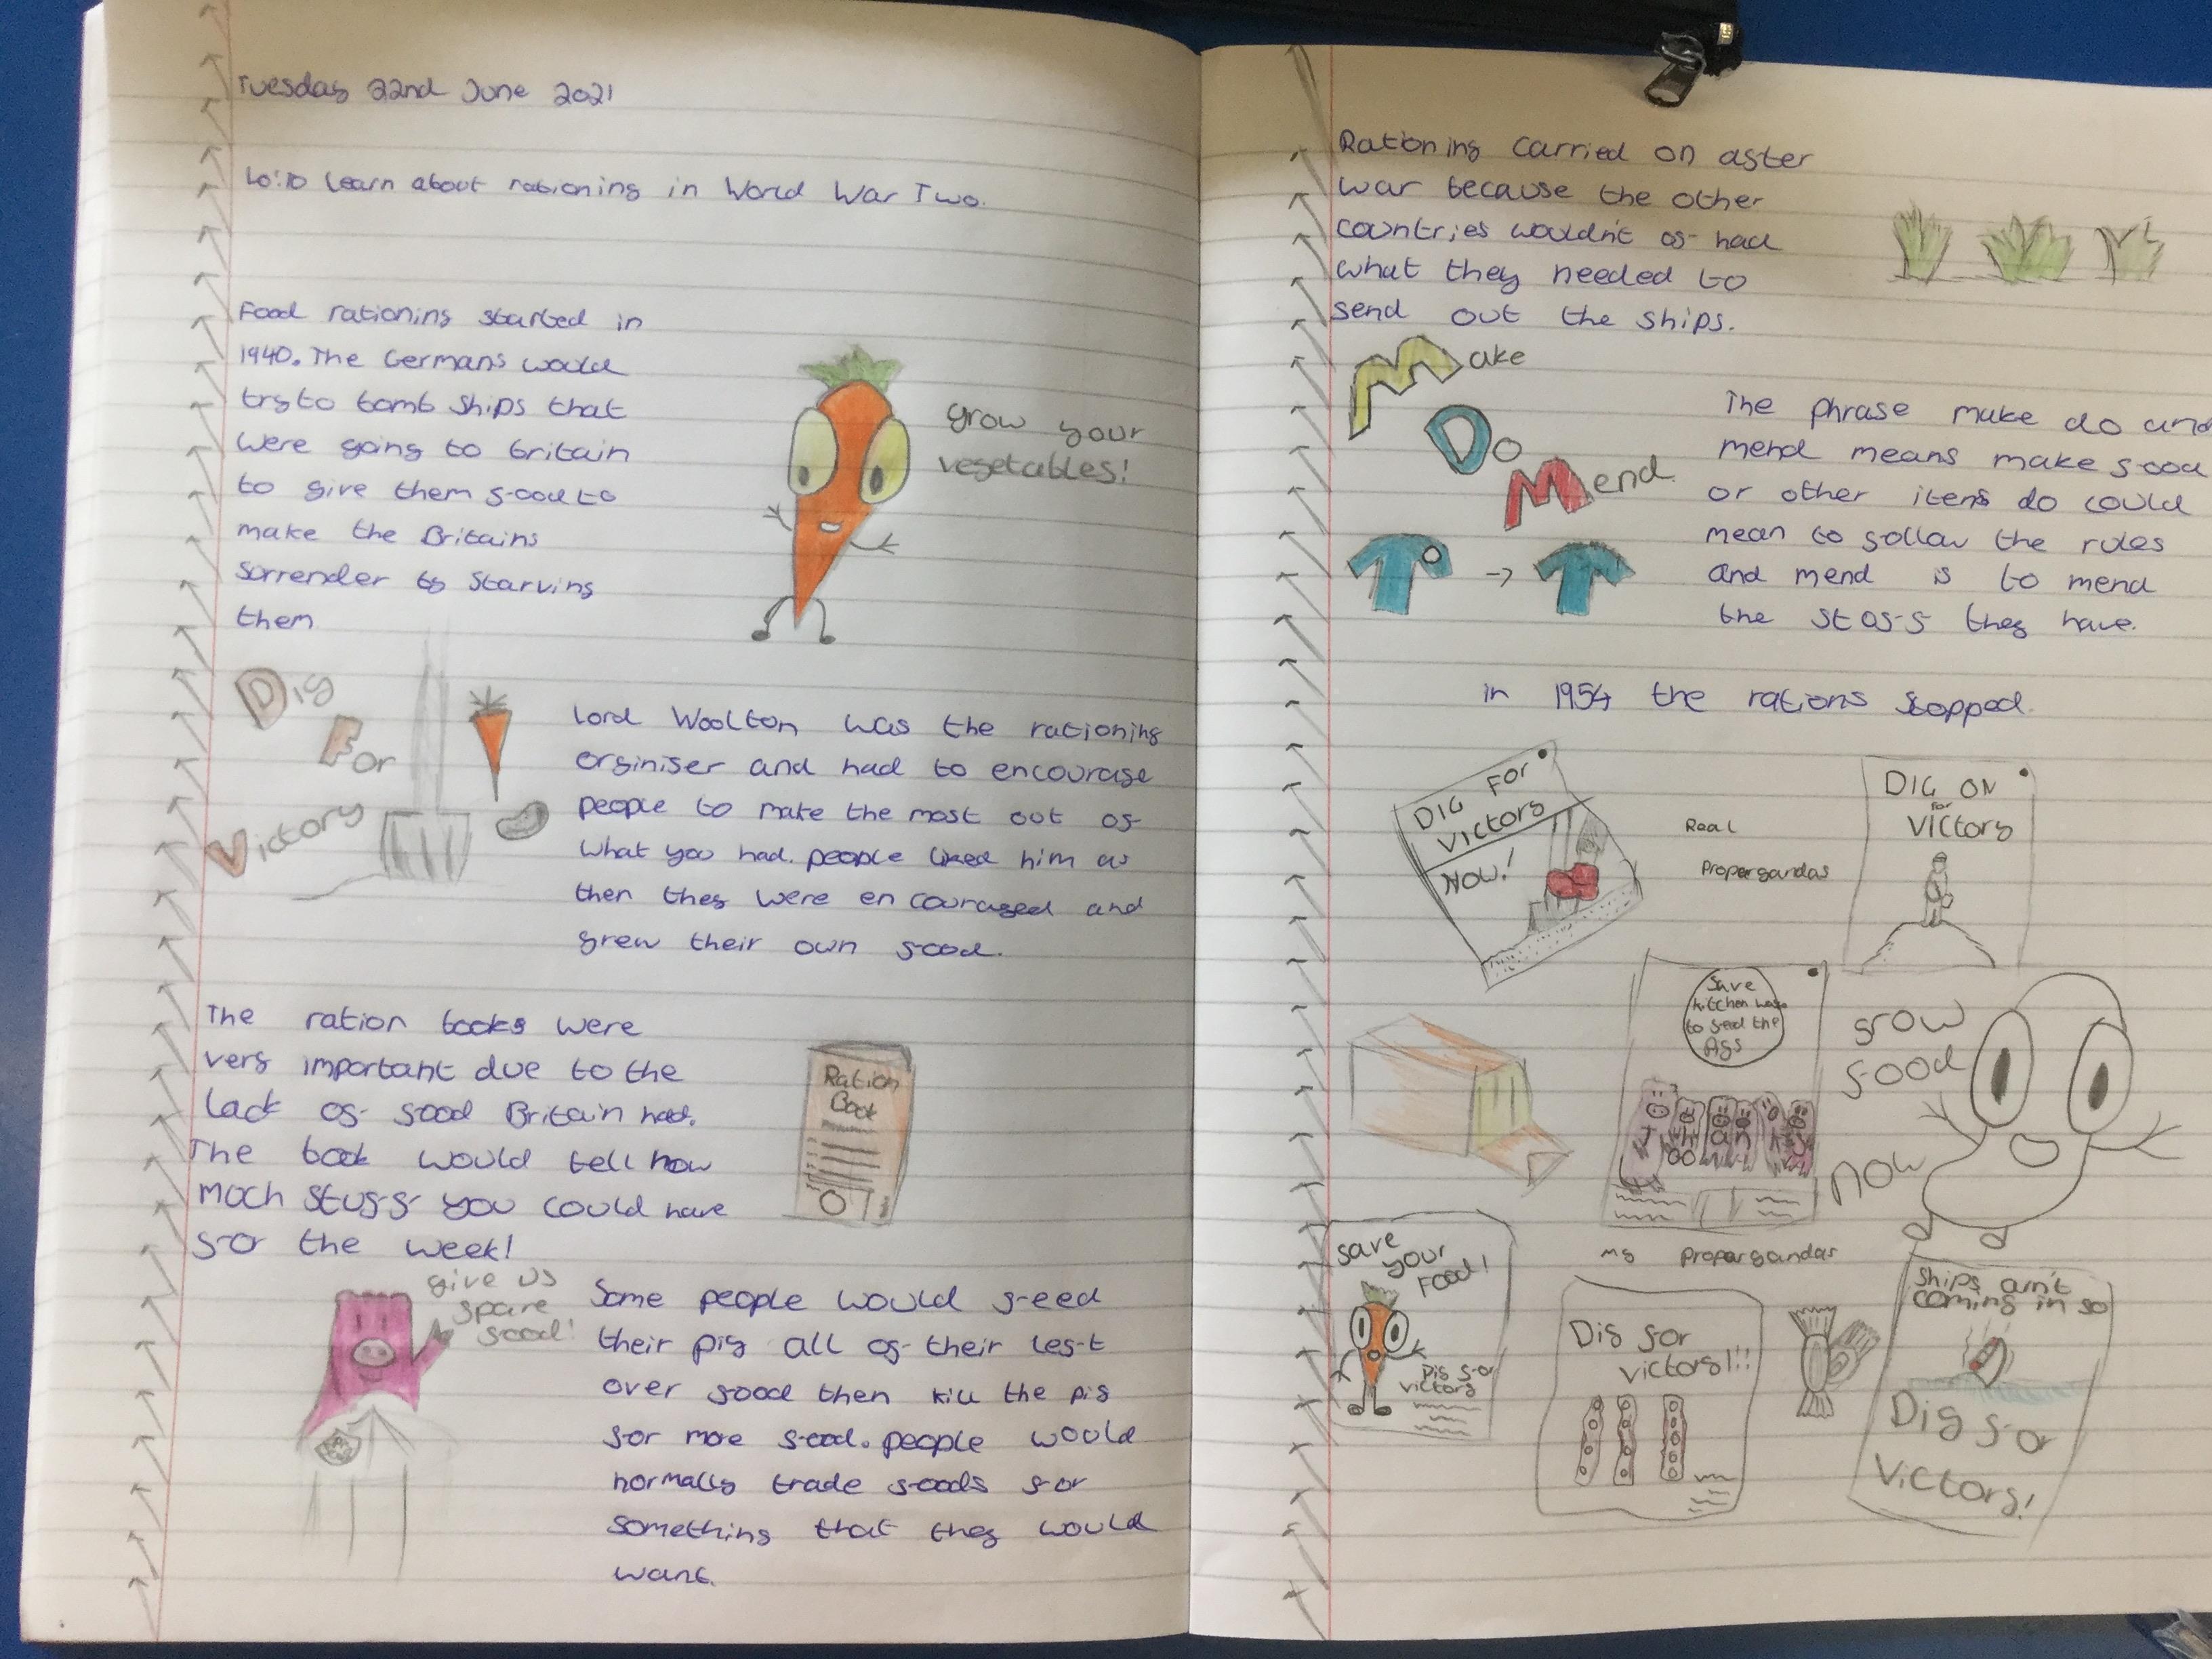 Tuesday 22nd June 2021
Lo: To learn about rationing in World War Two.
Food rationing started in
1940. The Germans would
try to bomb ships that
were going to britain
to give them food to
make the Britains
Sorrender by starving
them
grow your
vegetables!
Dig
For
Victory
Lord Woolton was the rationing
orginiser and had to encourage
people to make the most out of
what you had. people liked him as
then they were en couraged and
grew their own food.
The ration books were
very important due to the
lack of food Britain had.
The book would tell how
moch stuff you could have
for the week!
Ration
Book
give us
spare
food!
Some people would feed
their pig all of their left
over food then kill the pig
for more food. people would
normally trade foods for
something that they would
want.
Rationing carried on after
war because the other
countries wouldn't of had
what they needed to
send out the ships.
Make
Do
Mend
The phrase make do and
mend means make food
or other items do could
mean to follow the rules
and mend is to mend
the stoff they have.
in 1954 the rations stopped.
DIG FOR
VICTORY
NOW!
Real
Propergandas
DIG ON
for
VICTORY
Save
kitchen waste
to feed the
Pigs
Thanks
grow
food
now
my propergandas
save
your
Food!
Dig for
victory
Dig for
victory!!!
Ships ain't
coming in so
Dig for
Victory!